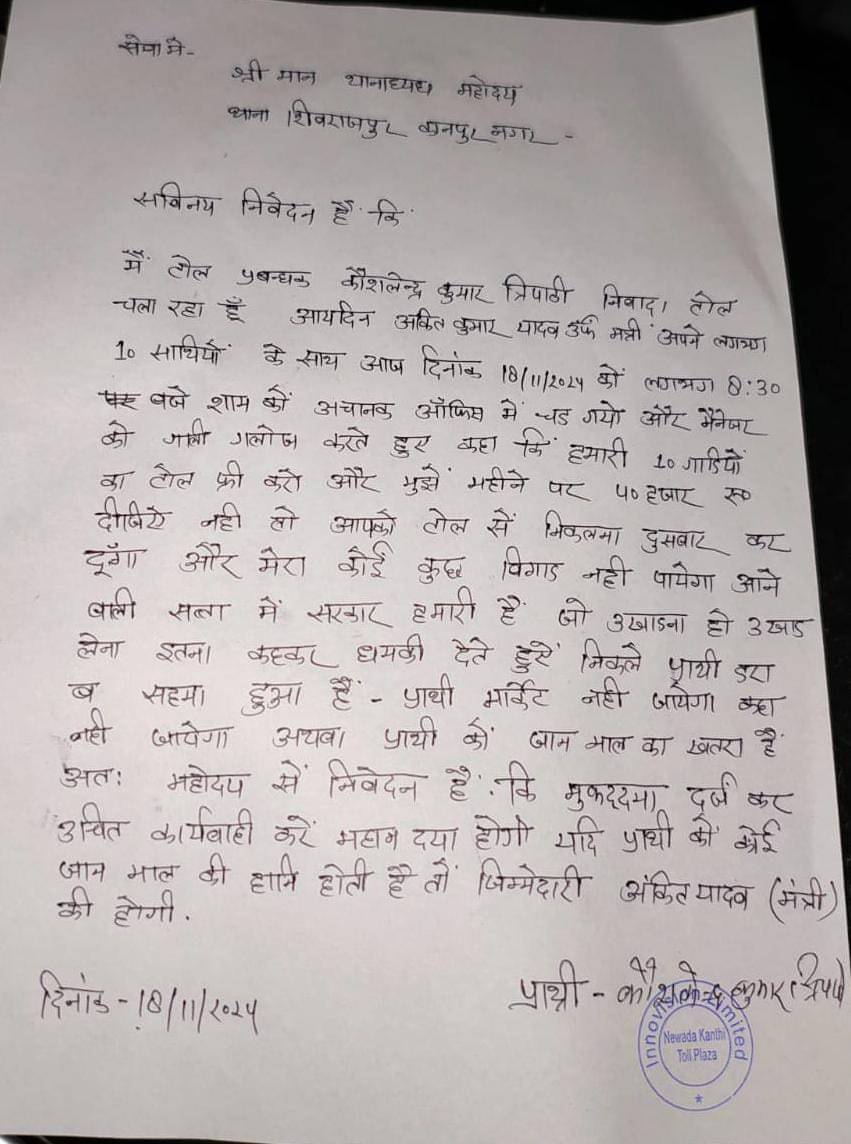 सेवा में-
श्री मान थानाध्यक्ष महोदय
थाना शिवराजपुर कानपुर नगर -
सविनय निवेदन हैं कि
मैं टोल प्रबन्धक कौशलेन्द्र कुमार त्रिपाठी निवादा टोल
चला रहा हूँ आयदिन अंकित कुमार यादव उर्फ मंत्री अपने लगभग
10 साथियों के साथ आज दिनांक 18/11/2024 को लगभग 8:30
बजे शाम कों अचानक ऑफिस में चड गयो और मैनेजर
को गाली गलोज करते हुए कहा कि हमारी 10 गाडियों
का टोल फ्री करो और मुझें महीने पर 40 हजार रू०
दीजिऐ नही तो आपको टोल सें निकलना दुसवार कर
दूँगा और मेरा कोई कुछ विगाड नही पायेगा आने
वाली सत्ता में सरकार हमारी हैं जो उखाडना हो उखाड
लेना इतना कहकर धमकी देते हुऐं निकले प्रार्थी डरा
व सहमा हुआ हैं - प्रार्थी मार्केट नही जायेगा कहा
नही जायेगा अथवा प्रार्थी कों जान माल का खतरा हैं
अतः महोदय सें निवेदन हैं. कि मुकददमा दर्ज कर
उचित कार्यवाही करें महान दया होगी यदि प्रार्थी कों कोई
जान माल की हानि होती है तों जिम्मेदारी अंकित यादव (मंत्री)
की होगी.
दिनांक - 18/11/2024
प्रार्थी - कौशलेन्द्र कुमार त्रिपाठी
Innovision Limited
Newada Kanthi
Toll Plaza